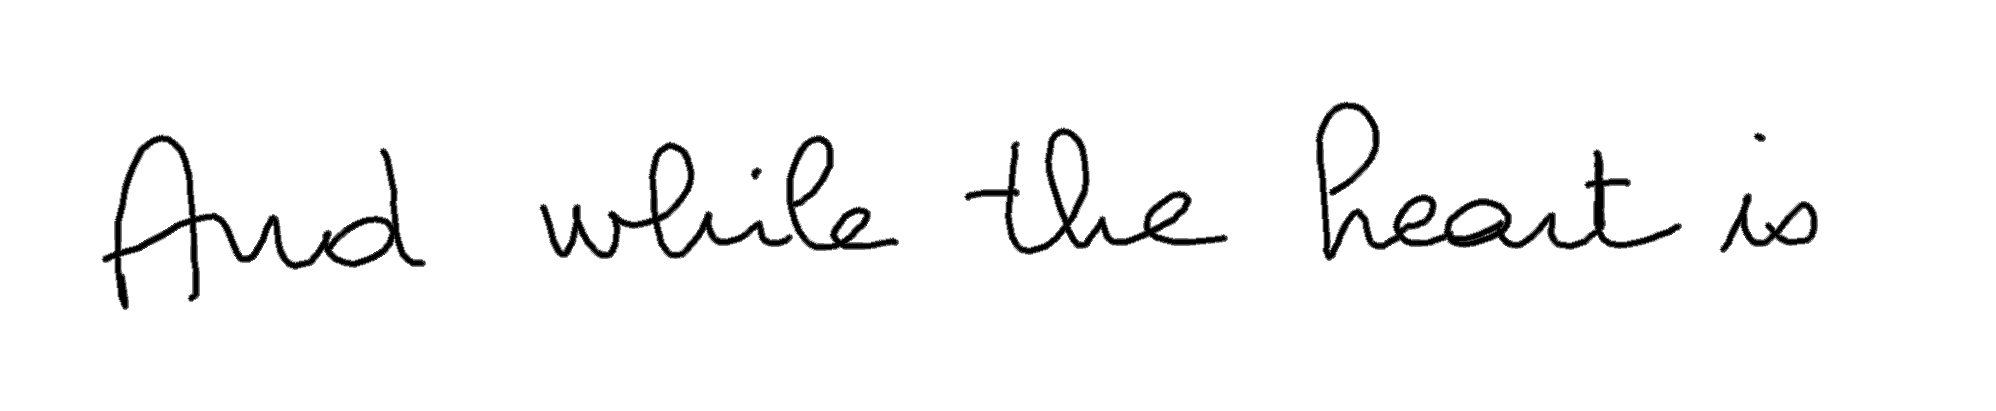 And while the heart is